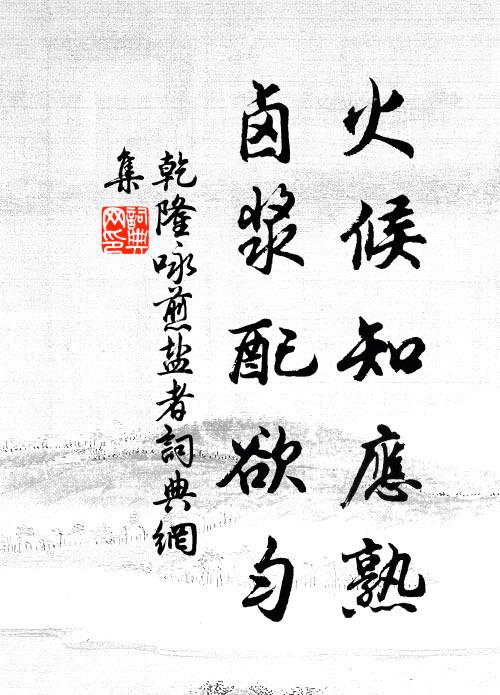 火候知應熟
卤漿配欲勻
乾隆咏煎盐者詞典網
集
詞典
网印